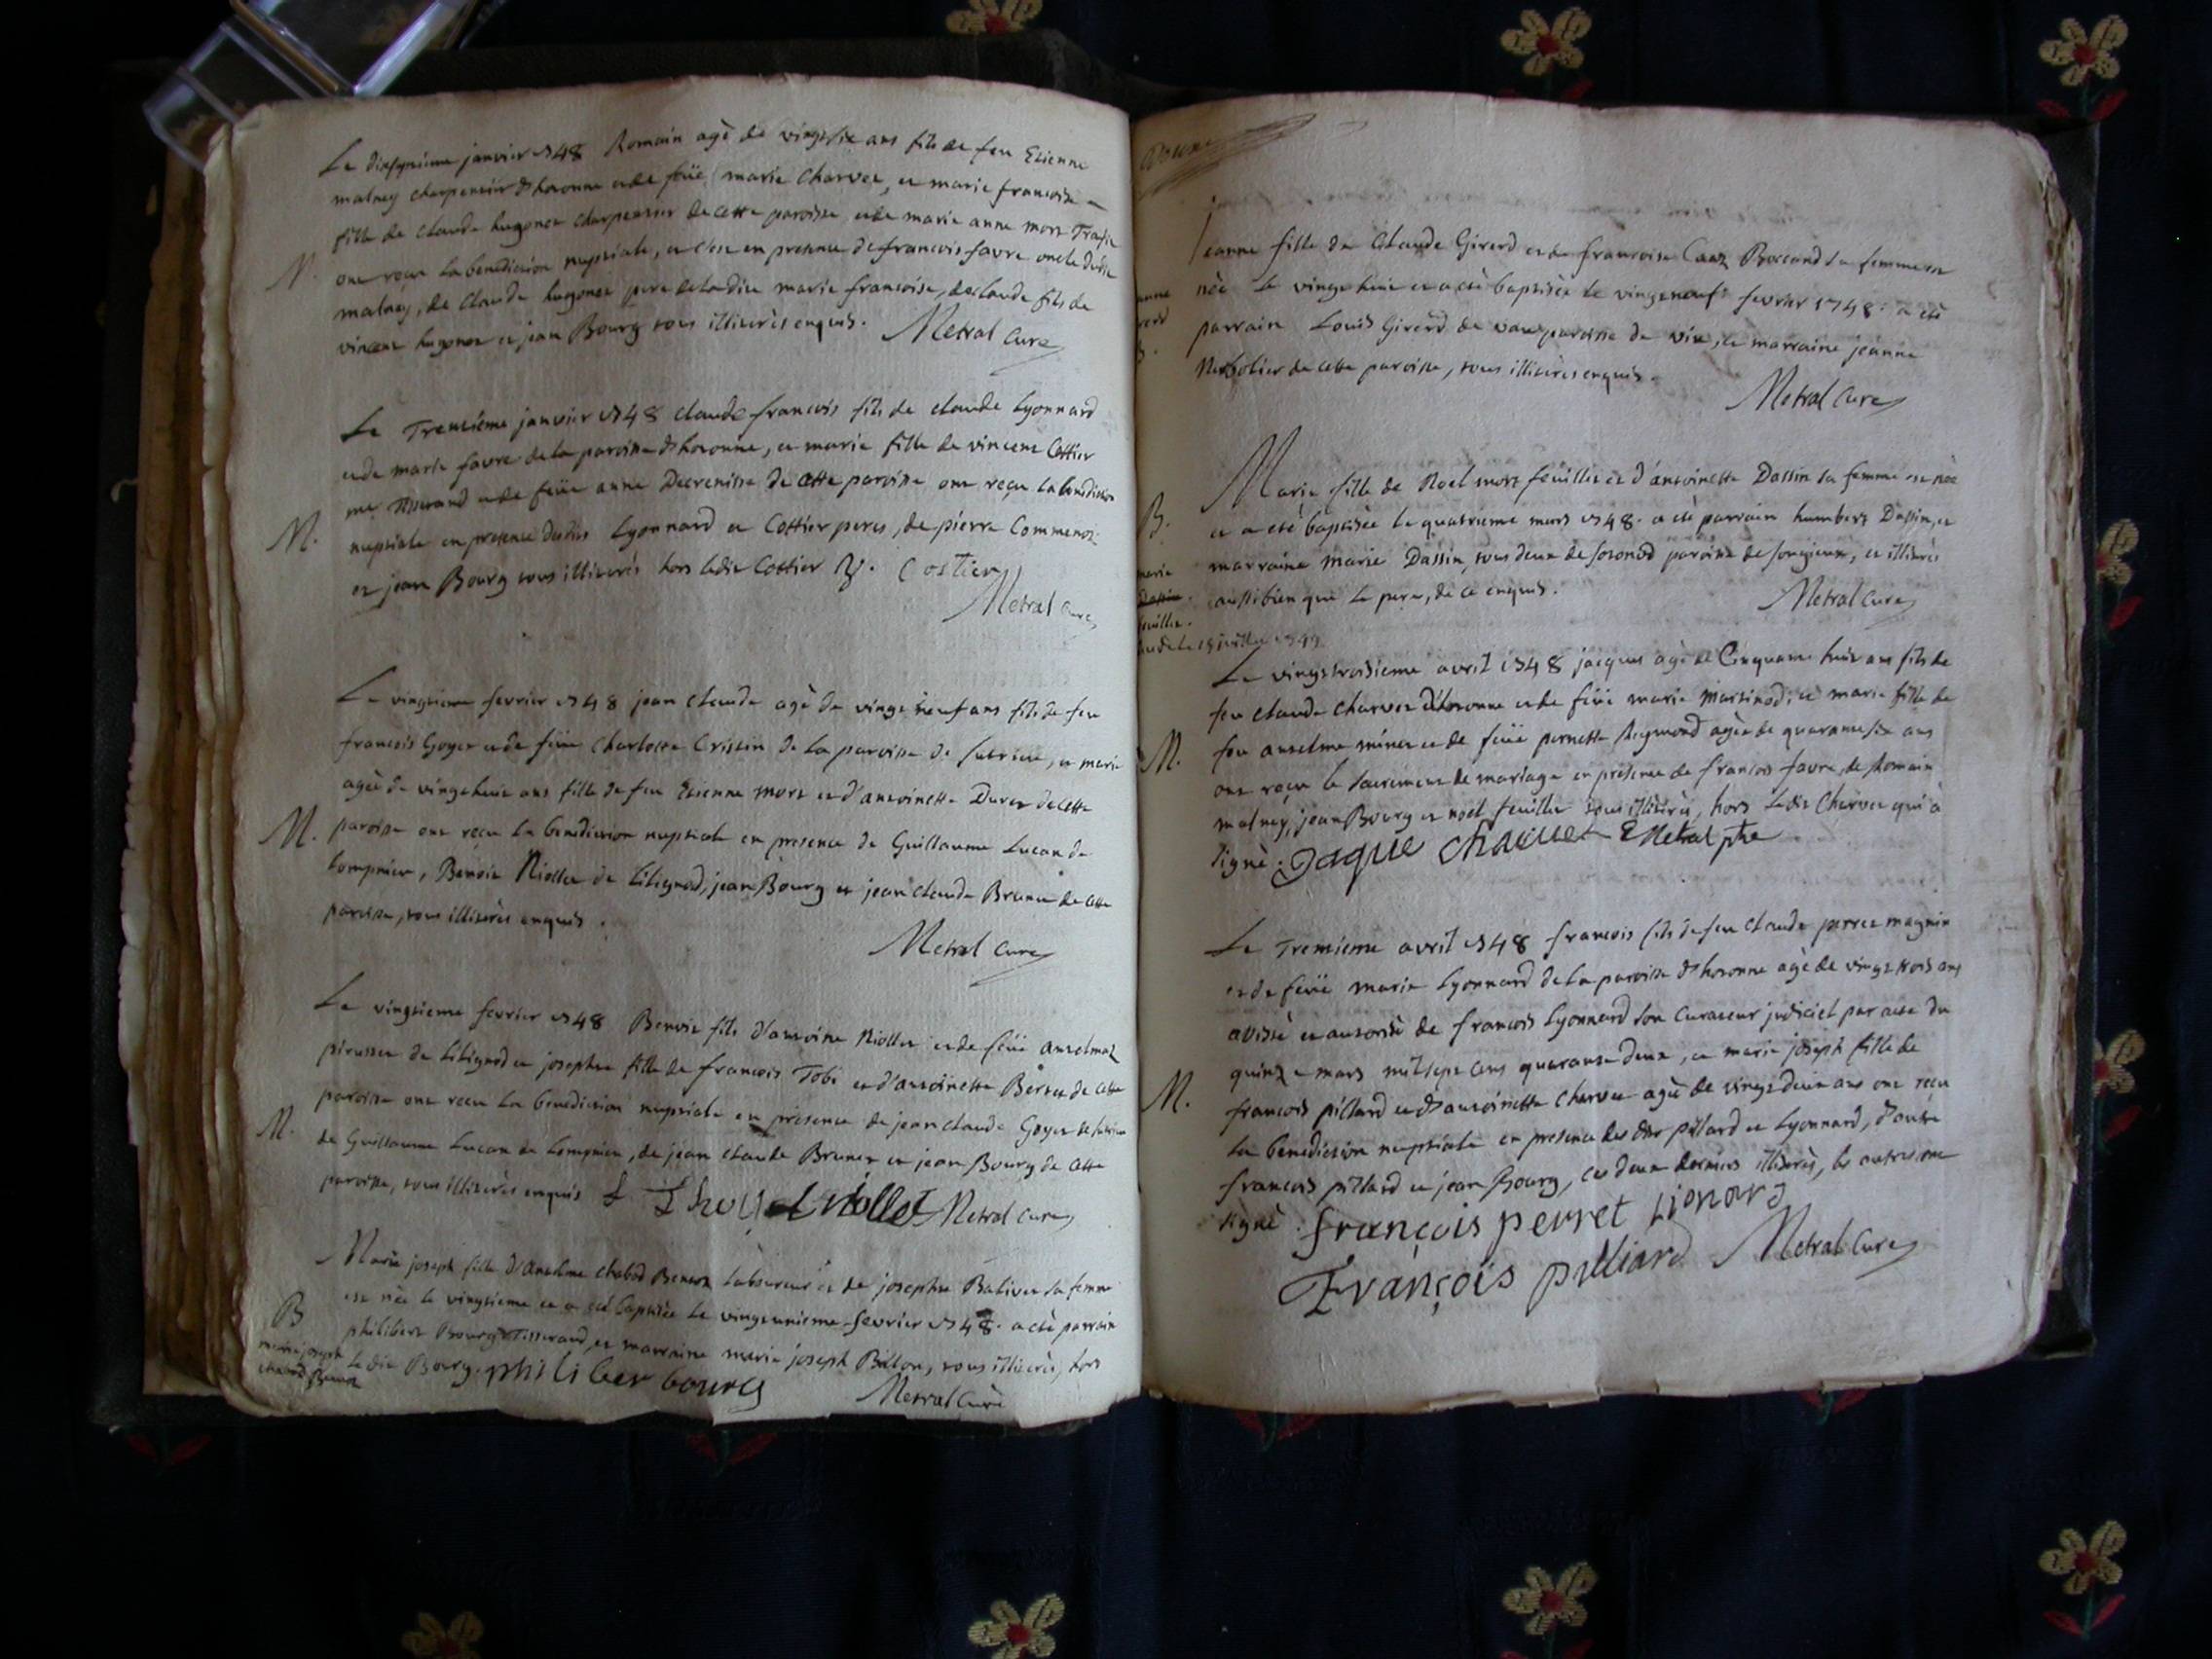 Le dixseptieme janvier 1748 Romain agè de vingtsix ans fils de feu Etienne
malney charpentier d'hotonne et de feüe marie Charvet, et marie francoise
fille de claude hugonet charpentier de cette paroisse et de marie anne mort
ont reçu la benediction nuptiale, et c'est en presence de francois favre oncle dudit
malney, de claude hugonet pere de ladite marie francoise, de claude fils de
vincent hugonet et jean Bourg tous illiterès enquis. Metral Curè
M.
Le Trentième janvier 1748 claude francois fils de claude Lyonnard
et de marie favre de la paroisse d'hotonne, et marie fille de vincent Cottier
me Tisserand et de feüe anne Decrenisse de cette paroisse ont reçu la benediction
nuptiale en presence desdits Lyonnard et Cottier peres, de pierre
et jean Bourg tous illiterés hors ledit Cottier Costier
Metral Curè
M.
Le vingtieme fevrier 1748 jean claude agè de vingt neuf ans fils de feu
francois Goyet et de feüe Charlotte Cristin de la paroisse de Sutrieu, et marie
agèe de vingt huit ans fille de feu Etienne mort et d'antoinette Duret de cette
paroisse ont reçu la benediction nuptiale en presence de Guillaume Lucan de
Lompnieu, Benoit Riollet de Lilignod, jean Bourg et jean claude Brunet de cette
paroisse, tous illiterès enquis.
Metral Curè
M.
Le vingtieme fevrier 1748 Benoit fils d'antoine Riollet et de feüe anselmaz
de Lilignod et josephte fille de francois Tobi et d'antoinette Bertet de cette
paroisse ont recu la benediction nuptiale en presence de jean claude Goyet de Sutrieu
de Guillaume Lucan de Lompnieu, de jean claude Brunet et jean Bourg de cette
paroisse, tous illiterès enquis Metral Curè
M.
Marie joseph fille d'Anselme chabod Benoit laboureur et de josephte Balivet sa femme
est nèe le vingtieme et a eté baptisèe le vingtunieme fevrier 1748. a etè parrain
philibert Bourg Tisserand, et marraine marie joseph Billon, tous illiterès, hors
le dit Bourg. philiber bourg
Metral Curè
B
marie joseph
chabod Benoit
Jeanne fille de Claude Girerd et de francoise Caaz Boccand sa femme est
nèe le vingt huit et a etè baptisèe le vingtneuf fevrier 1748. a etè
parrain Louis Girerd de vaux paroisse de , et marraine jeanne
de cette paroisse, tous illiterès enquis.
Metral Curè
Marie fille de Noel mort feüillet et d'antoinette Dassin sa femme est nèe
et a eté baptisèe le quatrieme mars 1748. a etè parrain humbert Dassin, et
marraine marie Dassin, tous deux de sotonod paroisse de songieux, et illiterès
aussi bien que le pere, de ce enquis.
Metral Curè
B.
marie
feuillet.
Le vingttroisieme avril 1748 jacques agè de Cinquante huit ans fils de
feu claude Charvet d'hotonne et de feüe marie martinod; et marie fille de
feu anselme minet et de feüe pernette Reymond agèe de quarante six ans
ont reçu le sacrement de mariage en présence de francois favre, de Romain
malney, jean Bourg et noel feuillet tous illiterès, hors ledit Charvet qui a
signè. Jaque Charuet Metral ptre
M.
Le Trentieme avril 1748 francois fils de feu claude perret magnin
et de feüe marie Lyonnard de la paroisse d'hotonne agè de vingt trois ans
avisè et autorisè de francois Lyonnard son curateur judiciel par acte du
quinze mars mil sept cens quarante deux, et marie joseph fille de
francois pillard et d'antoinette Charvet agèe de vingt deux ans ont recu
la benediction nuptiale en presence des dits pillard et Lyonnard, d'autre
francois pillard et jean Bourg, ces deux derniers illiterès, les autres ont
signè. françois perret Lionard
François pilliard Metral Curè
M.